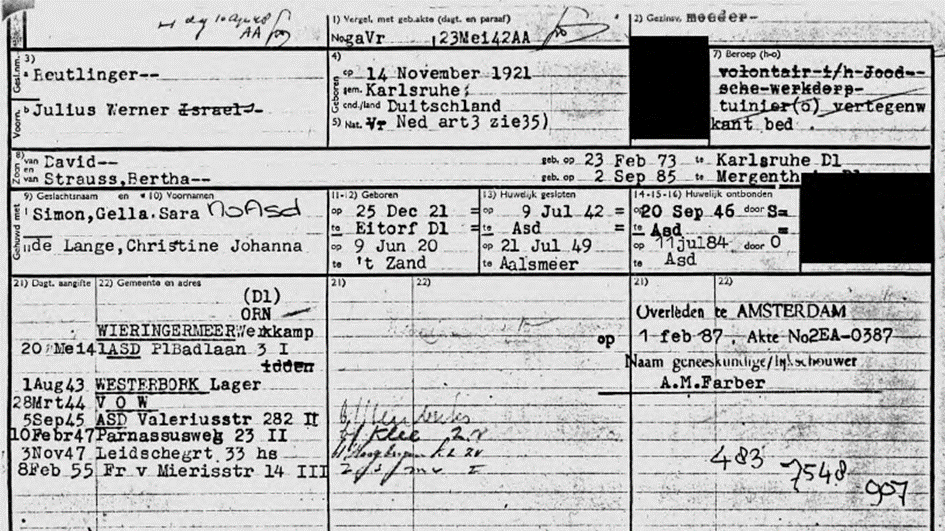 1) Vergel. met geb.akte (dagt. en paraaf)
2) Gezinsv. moeder-
No gaVr 23Mei42AA
AA
Gesl.nm. 3)
a Reutlinger--
Voorn. b Julius Werner Israel-
4)
Geboren
op 14 November 1921
gem. Karlsruhe;
cnd./land Duitschland
5) Nat. Vr Ned art3 zie35)
7) Beroep (h-o)
volontair i/h Jood--
sche-werkdorp-
tuinier(o) vertegenw
kant bed .
Zoon 8) van David-- geb. op 23 Feb 73 te Karlsruhe Dl
en van Strauss,Bertha-- geb. op 2 Sep 85 te
Gehuwd met
9) Geslachtsnaam en 10) Voornamen
I Simon,Gella.Sara NoAsd
II de Lange,Christine Johanna
11-12) Geboren
op 25 Dec 21 =
te Eitorf Dl =
op 9 Jun 20
te 't Zand
13) Huwelijk gesloten
op 9 Jul 42 =
te Asd =
op 21 Jul 49
te Aalsmeer
14-15-16) Huwelijk ontbonden
op 20 Sep 46 door S=
te Asd =
op 11jul84 door O
te Asd
21) Dagt. aangifte 22) Gemeente en adres
21) 22)
21) 22)
(Dl)
ORN
WIERINGERMEER Werkkamp
20 Mei41 ASD PlBadlaan 3 I
idden
1Aug43 WESTERBORK Lager
28Mrt44 V O W
5Sep45 ASD Valeriusstr 282 II
10Febr47 Parnassusweg 23 II
3Nov47 Leidschegrt 33 hs
8Feb 55 Fr v Mierisstr 14 III
Klee
op
Overleden te AMSTERDAM
1-feb-87. Akte No2EA-0387
Naam geneeskundige/lijkschouwer
A.M.Farber
483
7548
907